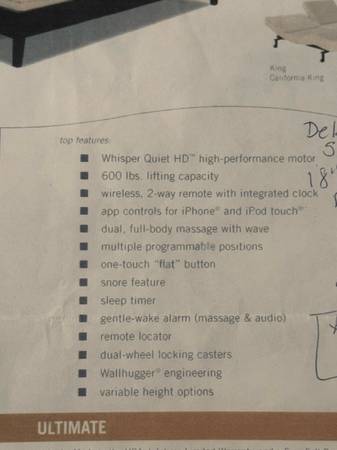 King
California King
top features:
■ Whisper Quiet HD™ high-performance motor
■ 600 lbs. lifting capacity
■ wireless, 2-way remote with integrated clock
■ app controls for iPhone® and iPod touch®
■ dual, full-body massage with wave
■ multiple programmable positions
■ one-touch "flat" button
■ snore feature
■ sleep timer
■ gentle-wake alarm (massage & audio)
■ remote locator
■ dual-wheel locking casters
■ Wallhugger® engineering
■ variable height options
Del
5
18"
ULTIMATE